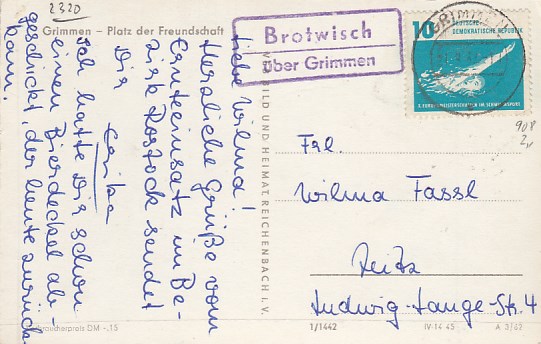 2320
Grimmen – Platz der Freundschaft
Brotwisch
über Grimmen
GRIMMEN
10
DEUTSCHE
DEMOKRATISCHE REPUBLIK
Liebe Wilma!
Herzliche Grüße vom
Ernteeinsatz im Be-
zirk Rostock sendet
Dir
Erika
Ich hatte Dir schon
einen Bierdeckel ab-
geschickt, der heute zurück
kam.
BILD UND HEIMAT REICHENBACH I. V.
Frl.
Wilma Fassl
Zeitz
Ludwig-Lange-Str. 4
Verbraucherpreis DM -,15
1/1442
IV-14 45
A 3/62